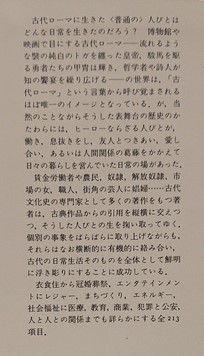 古代ローマに生きた〈普通の〉人びとは
どんな日常を生きたのだろう?　博物館や
映画で目にする古代ローマ——流れるよう
な襞の純白のトガを纏った皇帝、駿馬を駆
る勇者たちの甲冑は輝き、哲学者や詩人が
知の饗宴を繰り広げる——の世界は、「古
代ローマ」という言葉から呼び覚まされる
ほぼ唯一のイメージとなっている。が、当
然のことながらそうした表舞台の歴史のか
たわらには、ヒーローならざる人びとが、
働き、息抜きをし、友人とつきあい、愛し
合い、あるいは人間関係の葛藤をかかえて
日々の暮らしを営んでいた日常の場があった。
賃金労働者や農民、奴隷、解放奴隷、市
場の女、職人、街角の芸人に娼婦……古代
文化史の専門家として多くの著作をもつ著
者は、古典作品からの引用を縦横に交えつ
つ、そうした人びとの生を掬い取ってゆく。
個別の事象をばらばらに取り上げながらも、
それらはなお横断的に有機的に絡み合い、
古代の日常生活そのものを全体として鮮明
に浮き彫りにすることに成功している。
衣食住から冠婚葬祭、エンタテインメン
トにレジャー、まちづくり、エネルギー、
社会福祉に医療、教育、商業、犯罪と公安、
人と人との関係までも詳らかにする全213
項目。